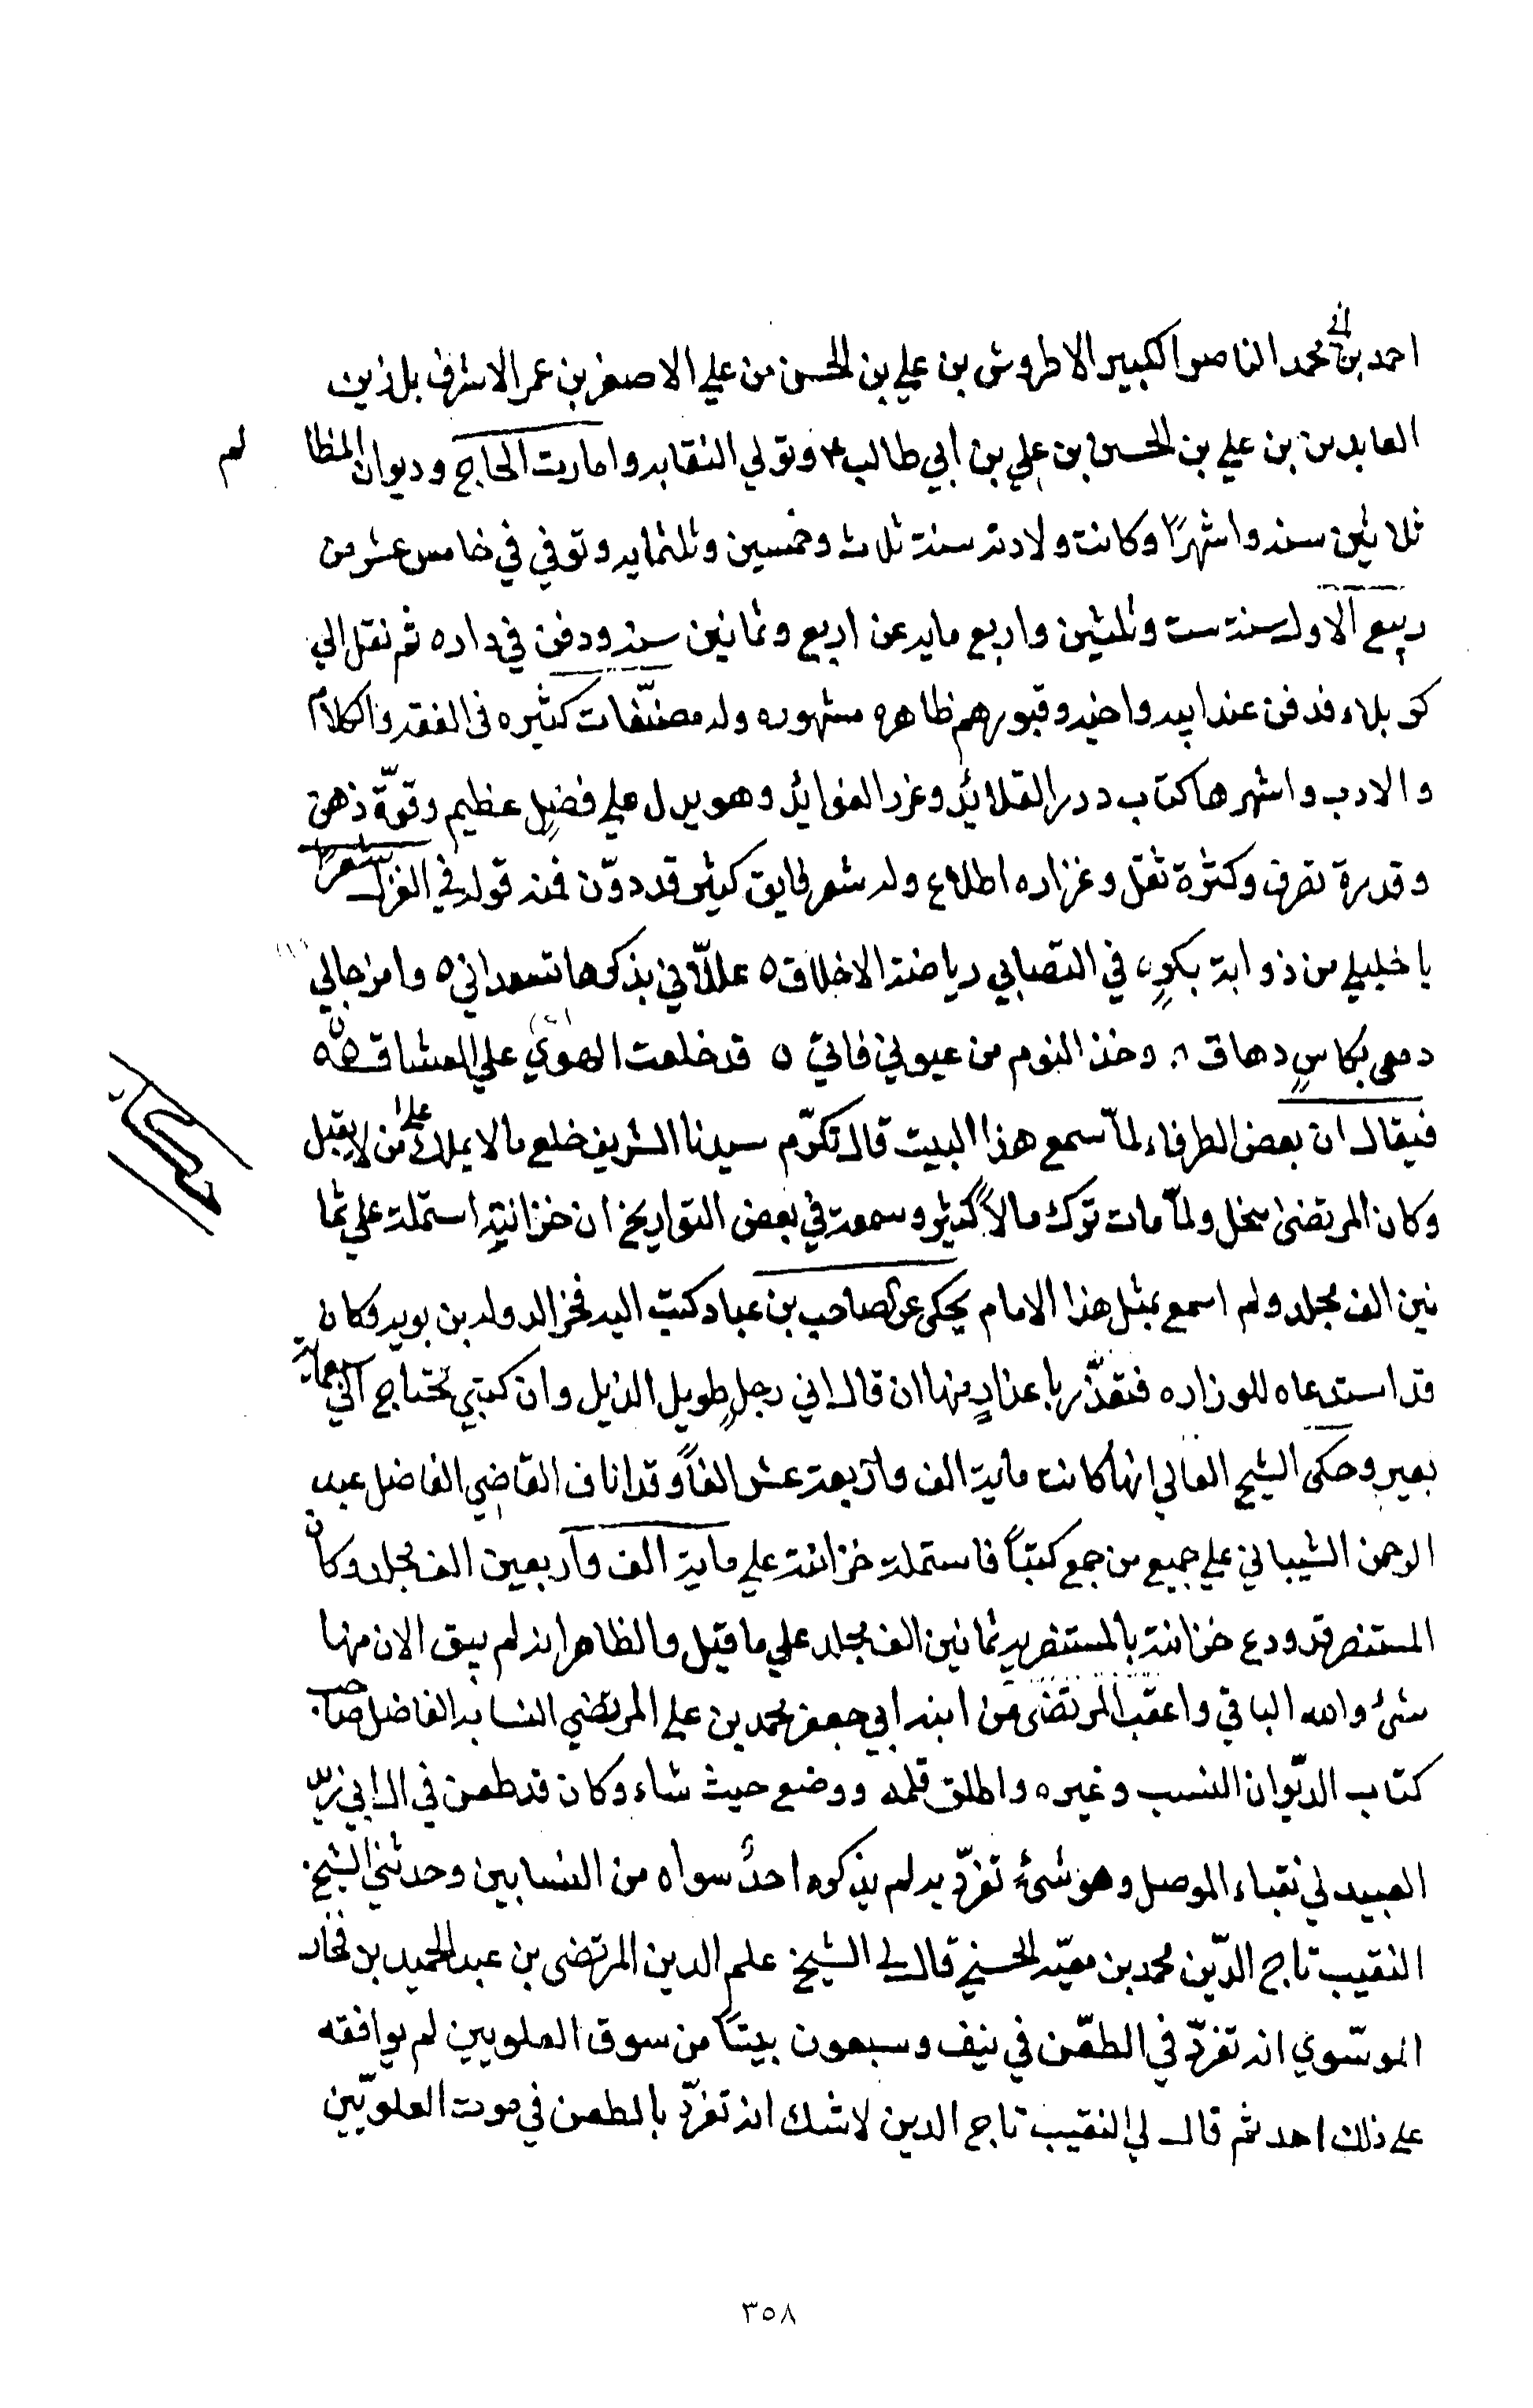 احمد بن ابي محمد الناصر الكبير الاطروش بن علي بن الحسن من علي الاصغر بن عمر الاشرف بل زين
العابدين بن علي بن الحسين بن علي بن ابي طالب ع وتولي النقابه وامارت الحاج وديوان المظا لم
ثلاثين سنه واشهرًا وكانت ولادته سنة ثلاث وخمسين وثلثمايه وتوفي في خامس عشر من
ربيع الاول سنة ست وثلثين واربع مايه عن اربع وثمانين سنه ودفن في داره ثم نقل الي
كربلاء فدفن عند ابيه واخيه وقبورهم ظاهره مشهوره وله مصنّفات كثيره في الفقه والكلام
والادب واشهرها كتاب درر القلائد وغرر الفوايد وهو يدل علي فضلٍ عظيم وقوّة ذهن
وقدرة تصرف وكثرة نقل وغزاره اطلاع وله شعر فايق كثير قد دوّن فمنه قوله في الغزل شعرًا
يا خليلي من ذوابة بكرٍ ه في التصابي رياضة الاخلاق ه عللاني بذكرها تسعداني ه وامزجالي (١)
دمعي بكاسٍ دهاق ه وخذ النوم من عيوني فاني ه (٢) قد خلعت الهوي علي العشاق ه
فيقال ان بعض الظرفاء لمّا سمع هذا البيت قال تكرّم سيدنا الشريف خلع ما لا يملك علي من لا يقبل
وكان المرتضى يبخل ولمّا مات ترك مالاً كثير وسمعت في بعض التواريخ ان خزانته استملة علي ثما
نين الف مجلد ولم اسمع بمثل هذا الامام يحكى عن الصاحب بن عباد كتب اليه فخر الدوله بن بويه وكان
قد استدعاه للوزاره فتعذّر باعذارٍ منها ان قال اني رجلٍ طويل الذيل وان كتبي تحتاج الي سبعماية
بعير وحكى الشيخ الفالي انها كانت ماية الف واربعة عشر الفاً وقد اناف القاضي الفاضل عبد
الرحمن الشيباني علي جميع من جمع كتباً فاستملة خزانته علي ماية الف واربعين الف مجلد وكان
المستنصر قد ودع خزانته بالمستنصريه ثمانين الف مجلد علي ما قيل والظاهر انه لم يبق الان منها
شئ والله الباقي واعقب المرتضى من ابنه ابي جعفر محمد بن علي المرتضي النسابه الفاضل صاحب
كتاب الديّوان النسب وغيره واطلق قلمه ووضع حيث شاء وكان قد طعن في ال ابي زيد
العبيد لي نقباء الموصل وهو شئ تفردّ به لم يذكره احدٌ سواه من النسابين وحدثني الشيخ
النقيب تاج الدّين محمد بن معيّه الحسني قال لي الشيخ علم الدين المرتضى بن عبد الحميد بن فخار
الموسّوي انه تفردّ في الطعّن في نيف وسبعون بيتاً من سوق العلويين لم يوافقه
علي ذلك احد ثم قال لي النقيب تاج الدين لا شك انه تفردّ بالطعن في موت العلويّين
٣٥٨